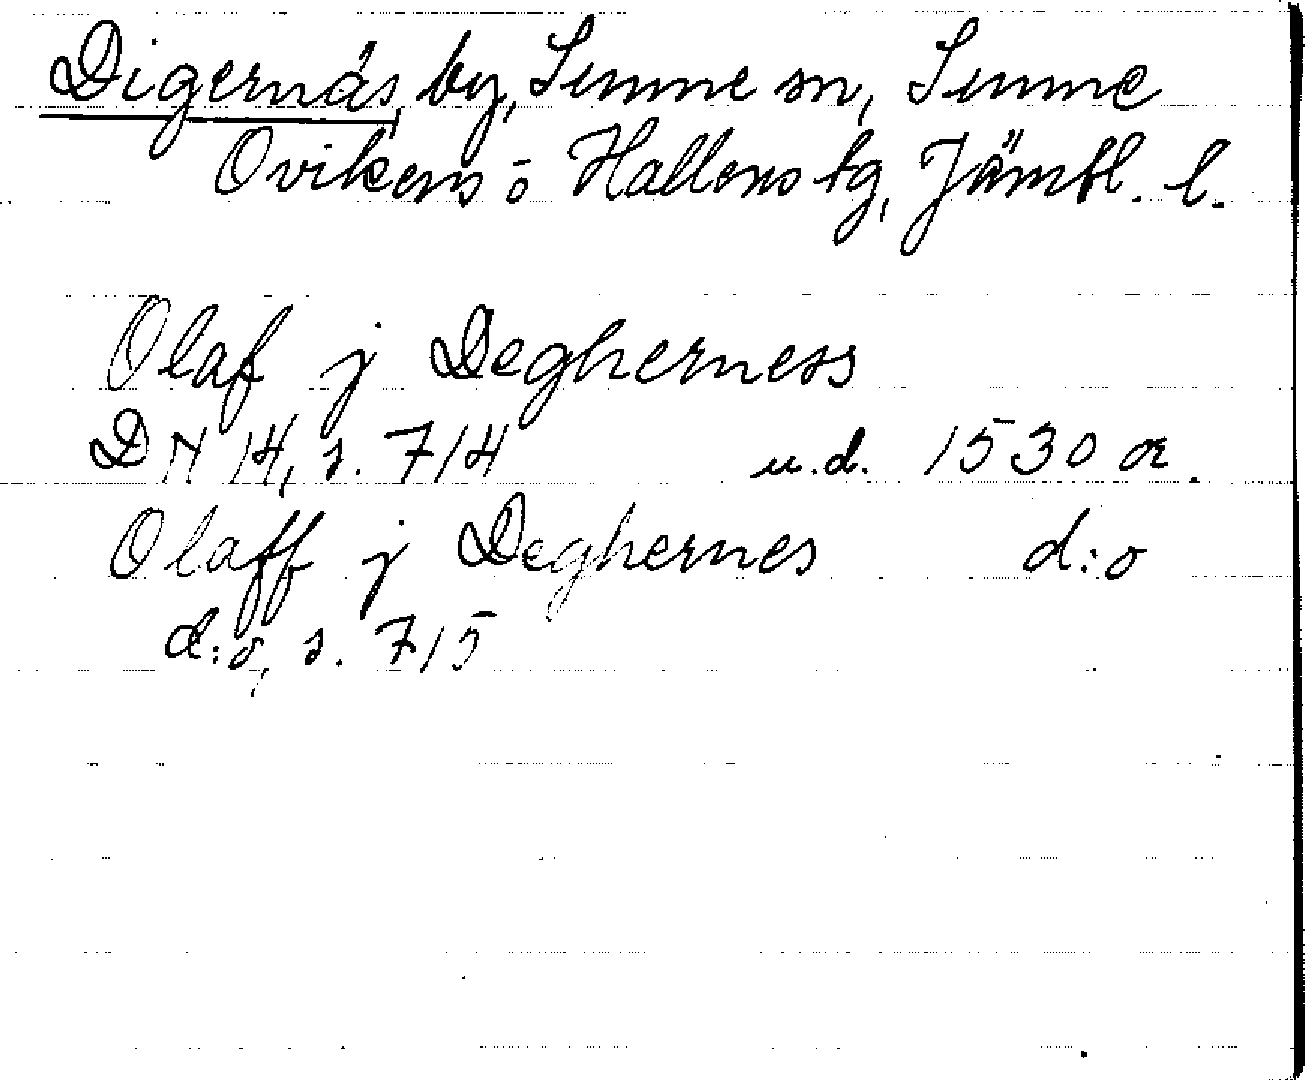 Digernäs by, Sunne sn, Sunne
Ovikens o Hallens tg, Jämtl. l.
Olaf j Degherness
DN 14, s. 714 u.d. 1530 or.
Olaff j Deghernes d:o
d:o, s. 715